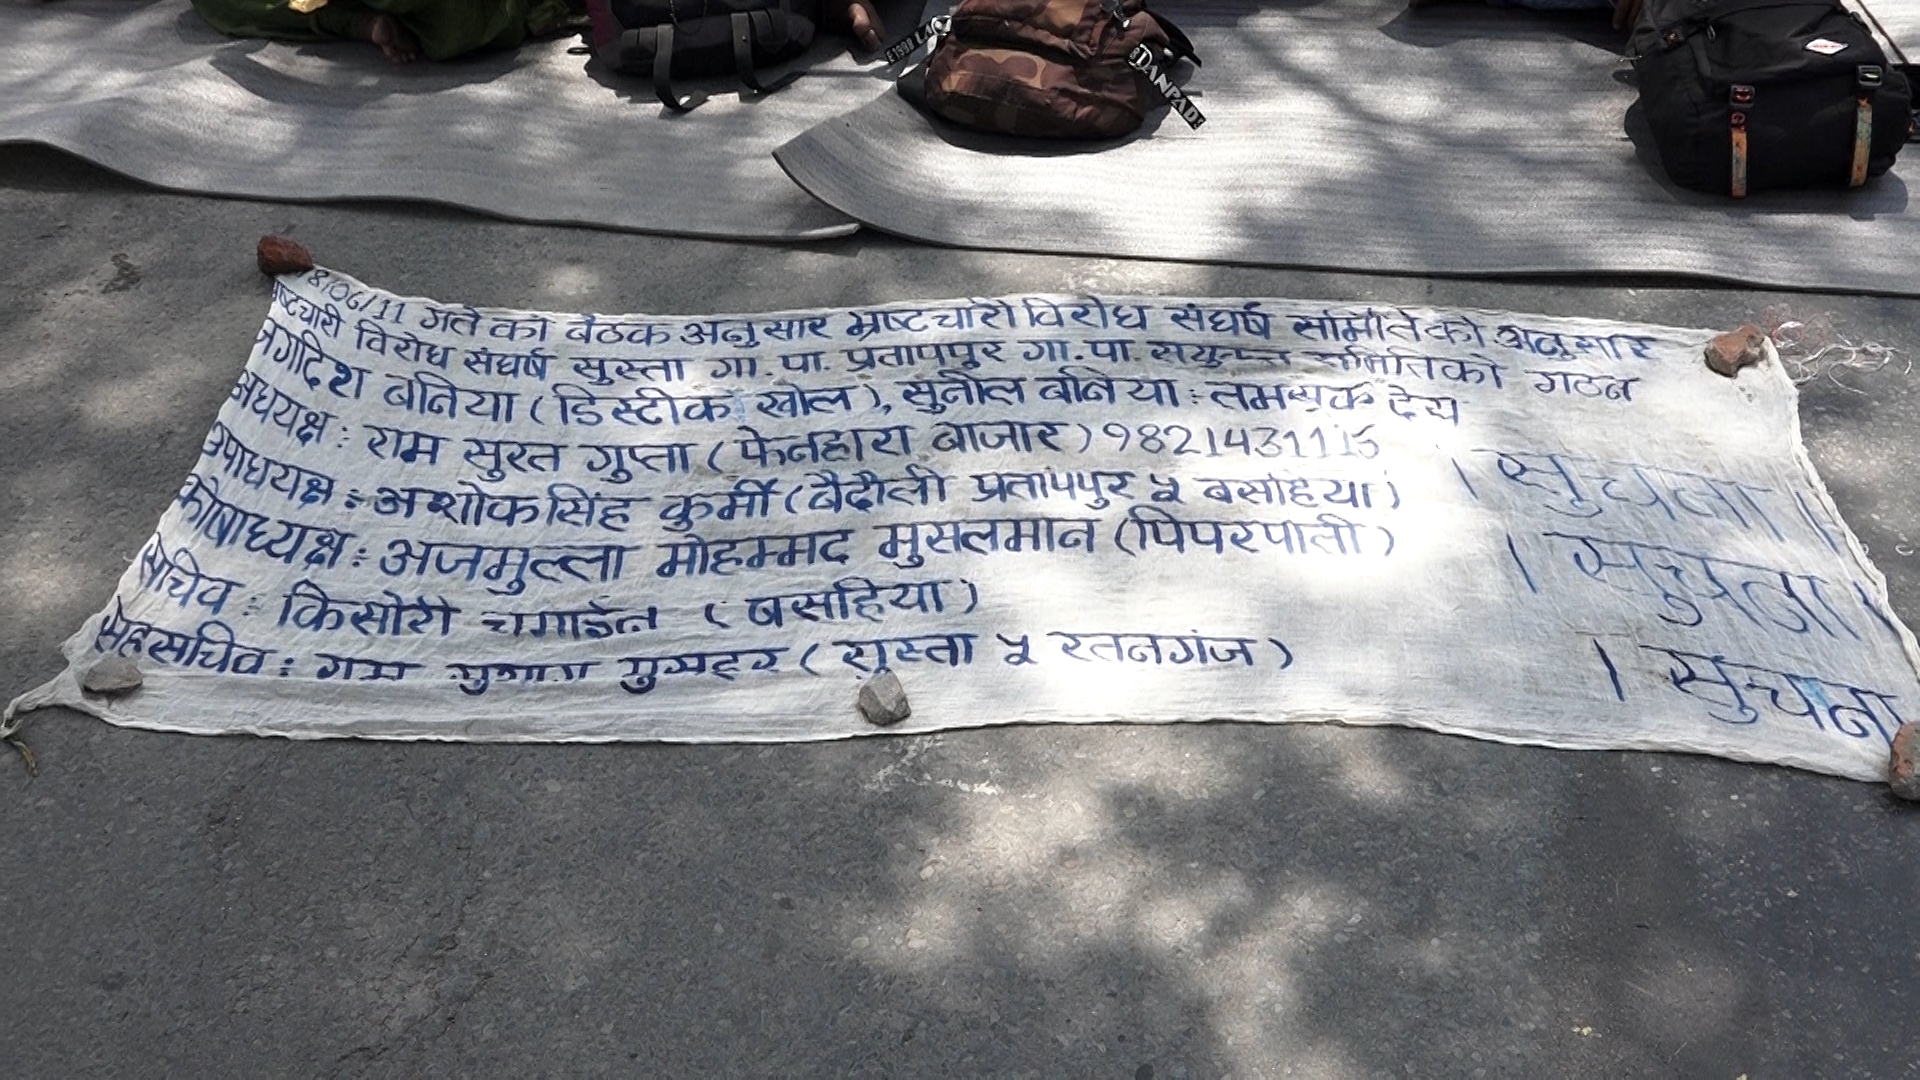 8/06/11 गते को बैठक अनुसार भ्रष्टचारी विरोध संघर्ष समितिको अनुसार
भ्रष्टचारी विरोध संघर्ष सुस्ता गा.पा. प्रतापपुर गा.पा. समितिको गठन
जगदिश बनिया (डिस्टीक खोल), सुनील बनिया :
अधयक्ष : राम सुरत गुप्ता (फेनहारा बाजार) 9821431115
उपाधयक्ष : अशोक सिंह कुर्मी (वैदौली प्रतापपुर ५ बसहिया)
कोषाध्यक्ष : अजमुल्ला मोहम्मद मुसलमान (पिपरपाती)
सचिव : किसोरी (बसहिया)
सहसचिव : राम मुसहर (सुस्ता ५ रतनगंज)
। सुचना ।
। सुचना ।
। सुचना
DANPAD